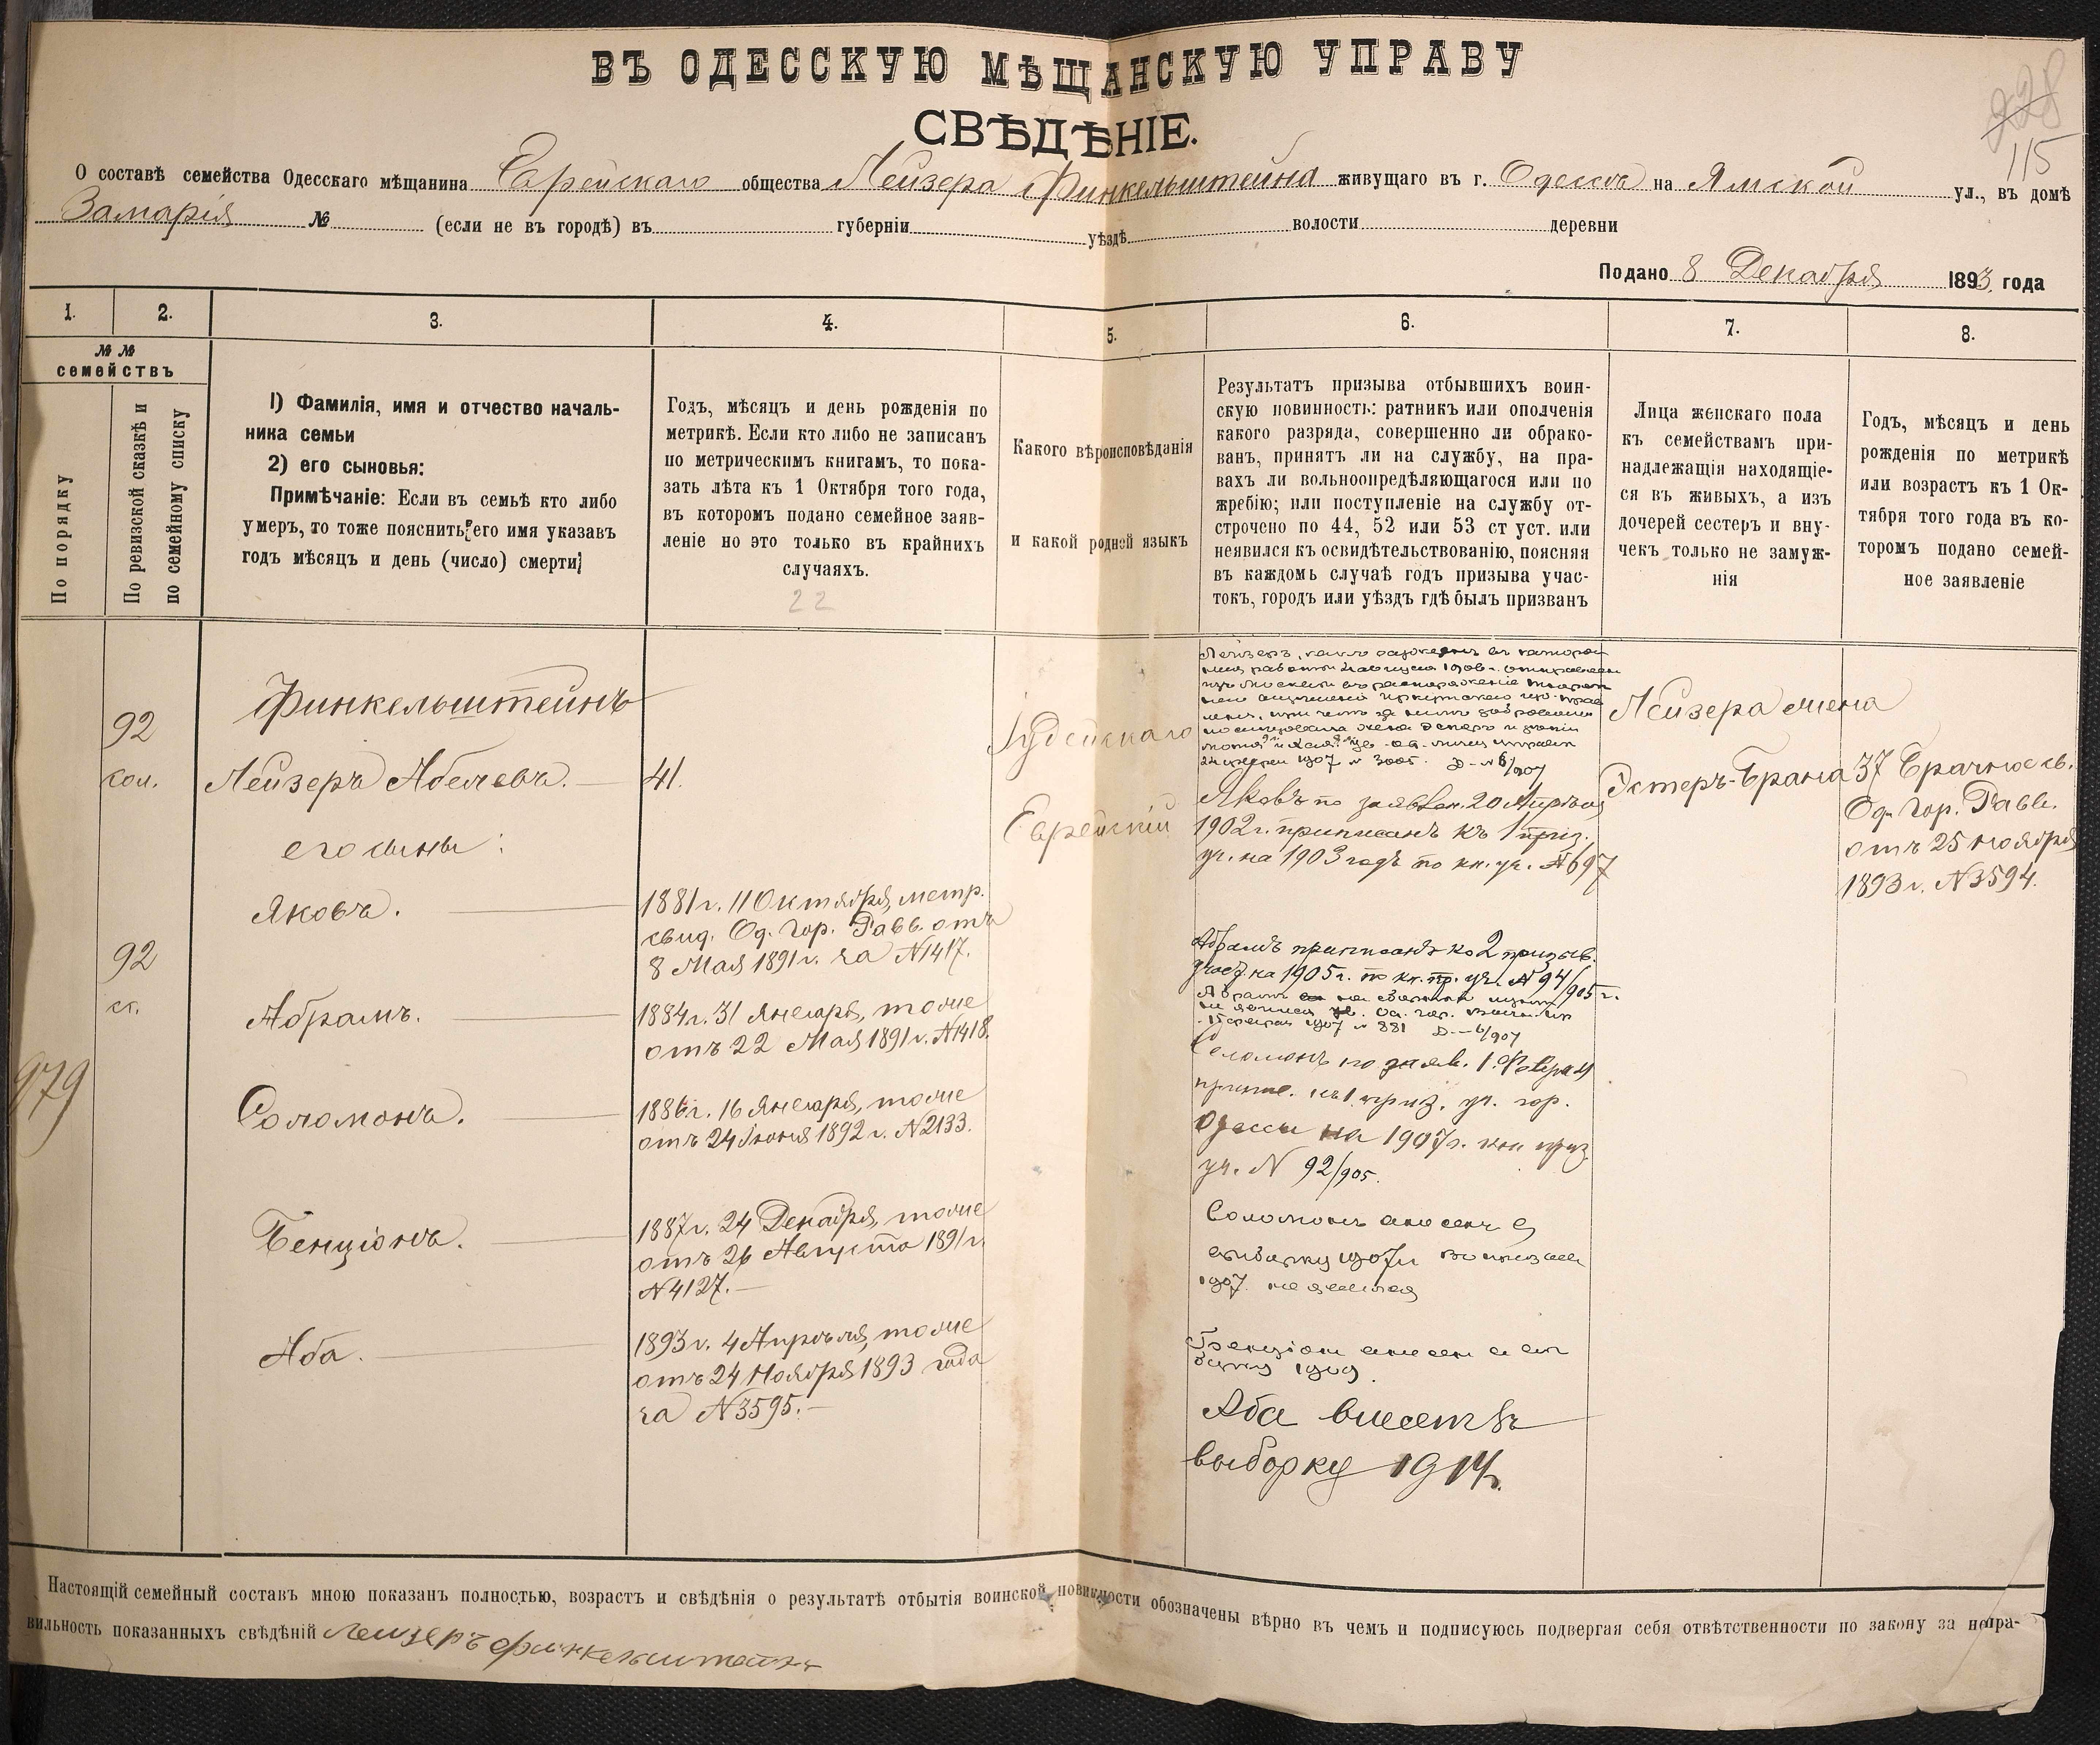 ВЪ ОДЕССКУЮ МѢЩАНСКУЮ УПРАВУ
СВѢДѢНІЕ.
228
115
О составѣ семейства Одесскаго мѣщанина Еврейскаго общества Лейзера Финкельштейна живущаго въ г. Одессѣ на Ямской ул., въ домѣ
Замарія № (если не въ городѣ) въ губерніи уѣздѣ волости деревни
Подано 8 Декабря 1893 года
1. 2. 3. 4. 5. 6. 7. 8.
№ №
семействъ
По порядку
По ревизской сказкѣ и
по семейному списку
1) Фамилія, имя и отчество началь-
ника семьи
2) его сыновья:
Примѣчаніе: Если въ семьѣ кто либо
умеръ, то тоже пояснить его имя указавъ
годъ мѣсяцъ и день (число) смерти
Годъ, мѣсяцъ и день рожденія по
метрикѣ. Если кто либо не записанъ
по метрическимъ книгамъ, то пока-
зать лѣта къ 1 Октября того года,
въ которомъ подано семейное заяв-
леніе но это только въ крайнихъ
случаяхъ.
22
Какого вѣроисповѣданія
и какой родной языкъ
Результатъ призыва отбывшихъ воин-
скую повинность: ратникъ или ополченія
какого разряда, совершенно ли обрако-
ванъ, принятъ ли на службу, на пра-
вахъ ли вольноопредѣляющагося или по
жребію; или поступленіе на службу от-
строчено по 44, 52 или 53 ст уст. или
неявился къ освидѣтельствованію, поясняя
въ каждомъ случаѣ годъ призыва учас-
токъ, городъ или уѣздъ гдѣ былъ призванъ
Лица женскаго пола
къ семействамъ при-
надлежащія находящіе-
ся въ живыхъ, а изъ
дочерей сестеръ и вну-
чекъ только не замуж-
нія
Годъ, мѣсяцъ и день
рожденія по метрикѣ
или возрастъ къ 1 Ок-
тября того года въ ко-
торомъ подано семей-
ное заявленіе
979
92
92
Финкельштейнъ
Лейзеръ Абелевъ.
его сыны:
Яковъ.
Абрамъ.
Соломонъ.
Бенціонъ.
Аба.
41.
1881 г. 11 Октября, метр.
свид. Од. Гор. Равв. отъ
8 Мая 1891 г. за №1417.
1884 г. 31 Января, тоже
отъ 22 Мая 1891 г. №1418.
1886 г. 16 Января, тоже
отъ 24 Іюня 1892 г. №2133.
1887 г. 24 Декабря, тоже
отъ 26 Августа 1891 г.
№4127.
1893 г. 4 Апрѣля, тоже
отъ 24 Ноября 1893 года
за №3595.
Іудейскаго
Еврейскій
1907 № 3005. Д-№ 6/907
Яковъ по заявлен. 20 Апрѣля
1902 г. приписанъ къ 1 приз.
уч. на 1903 годъ по кн. уч. №697
Абрамъ приписанъ ко 2 призыв.
участ. на 1905 г. по кн. пр. уч. № 94/905 г.
1907 № 881 Д-6/907
Соломонъ по заяв. 1 Февраля
припис. къ 1 приз. уч. гор.
Одессы на 1907 г. кн приз
уч. № 92/905.
Соломонъ внесенъ въ
выборку 1907 г
1907 не явился
Бенціон внесен в вы
борку 1909.
Аба внесенъ въ
выборку 1914 г.
Лейзера жена
Эстеръ-Брана
37 Брачное св.
Од. Гор. Равв.
отъ 25 Ноября
1893 г. №3594.
Настоящій семейный составъ мною показанъ полностью, возрастъ и свѣдѣнія о результатѣ отбытія воинской повинности обозначены вѣрно въ чемъ и подписуюсь подвергая себя отвѣтственности по закону за непра-
вильность показанныхъ свѣдѣній Лейзеръ Финкельштейнъ